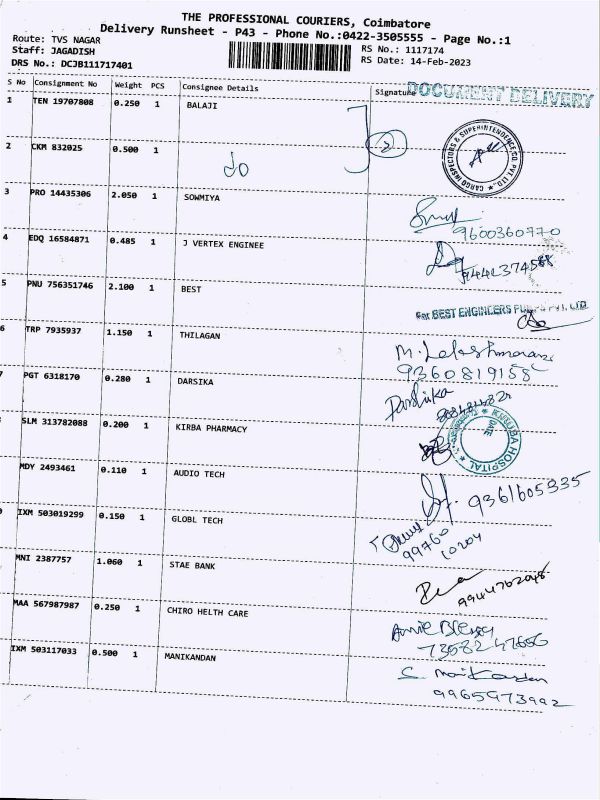 THE PROFESSIONAL COURIERS, Coimbatore
Delivery Runsheet - P43 - Phone No.:0422-3505555 - Page No.:1
Route: TVS NAGAR
RS No.: 1117174
Staff: JAGADISH
RS Date: 14-Feb-2023
DRS No.: DCJB111717401
S No Consignment No Weight PCS Consignee Details Signature
DOCUMENT DELIVERY
1 TEN 19707808 0.250 1 BALAJI
2 CKM 832025 0.500 1 do 2
CARGO INSPECTORS & SUPERINTENDENCE CO. PVT. LTD.
3 PRO 14435306 2.050 1 SOWMIYA
9600360770
4 EDQ 16584871 0.485 1 J VERTEX ENGINEE
5 PNU 756351746 2.100 1 BEST
For BEST ENGINEERS PUMPS PVT. LTD.
6 TRP 7935937 1.150 1 THILAGAN
9360819158
7 PGT 6318170 0.280 1 DARSIKA Darsika
SLM 313782088 0.200 1 KIRBA PHARMACY
HOSPITAL
DATE
MDY 2493461 0.110 1 AUDIO TECH
9361605335
IXM 503019299 0.150 1 GLOBL TECH
99760
10204
MNI 2387757 1.060 1 STAE BANK
MAA 567987987 0.250 1 CHIRO HELTH CARE
Annie Blessy
IXM 503117033 0.500 1 MANIKANDAN
9965973992